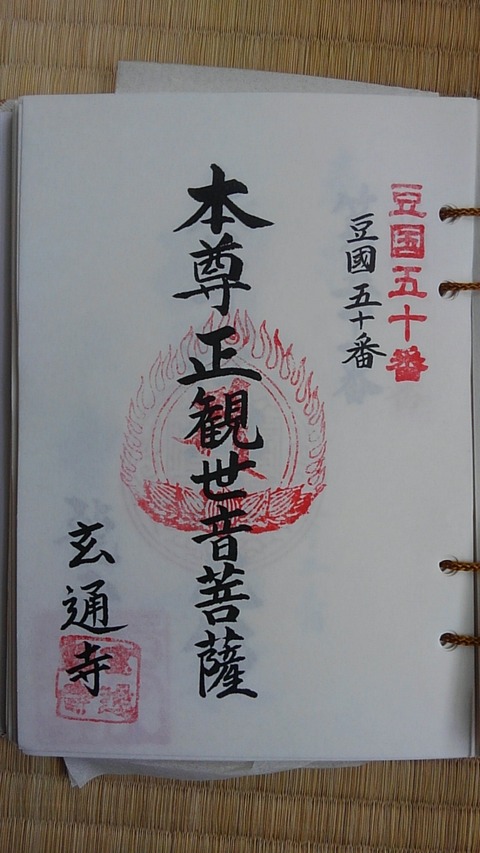 豆国五十番
豆國五十番
本尊正観世音菩薩
玄通寺